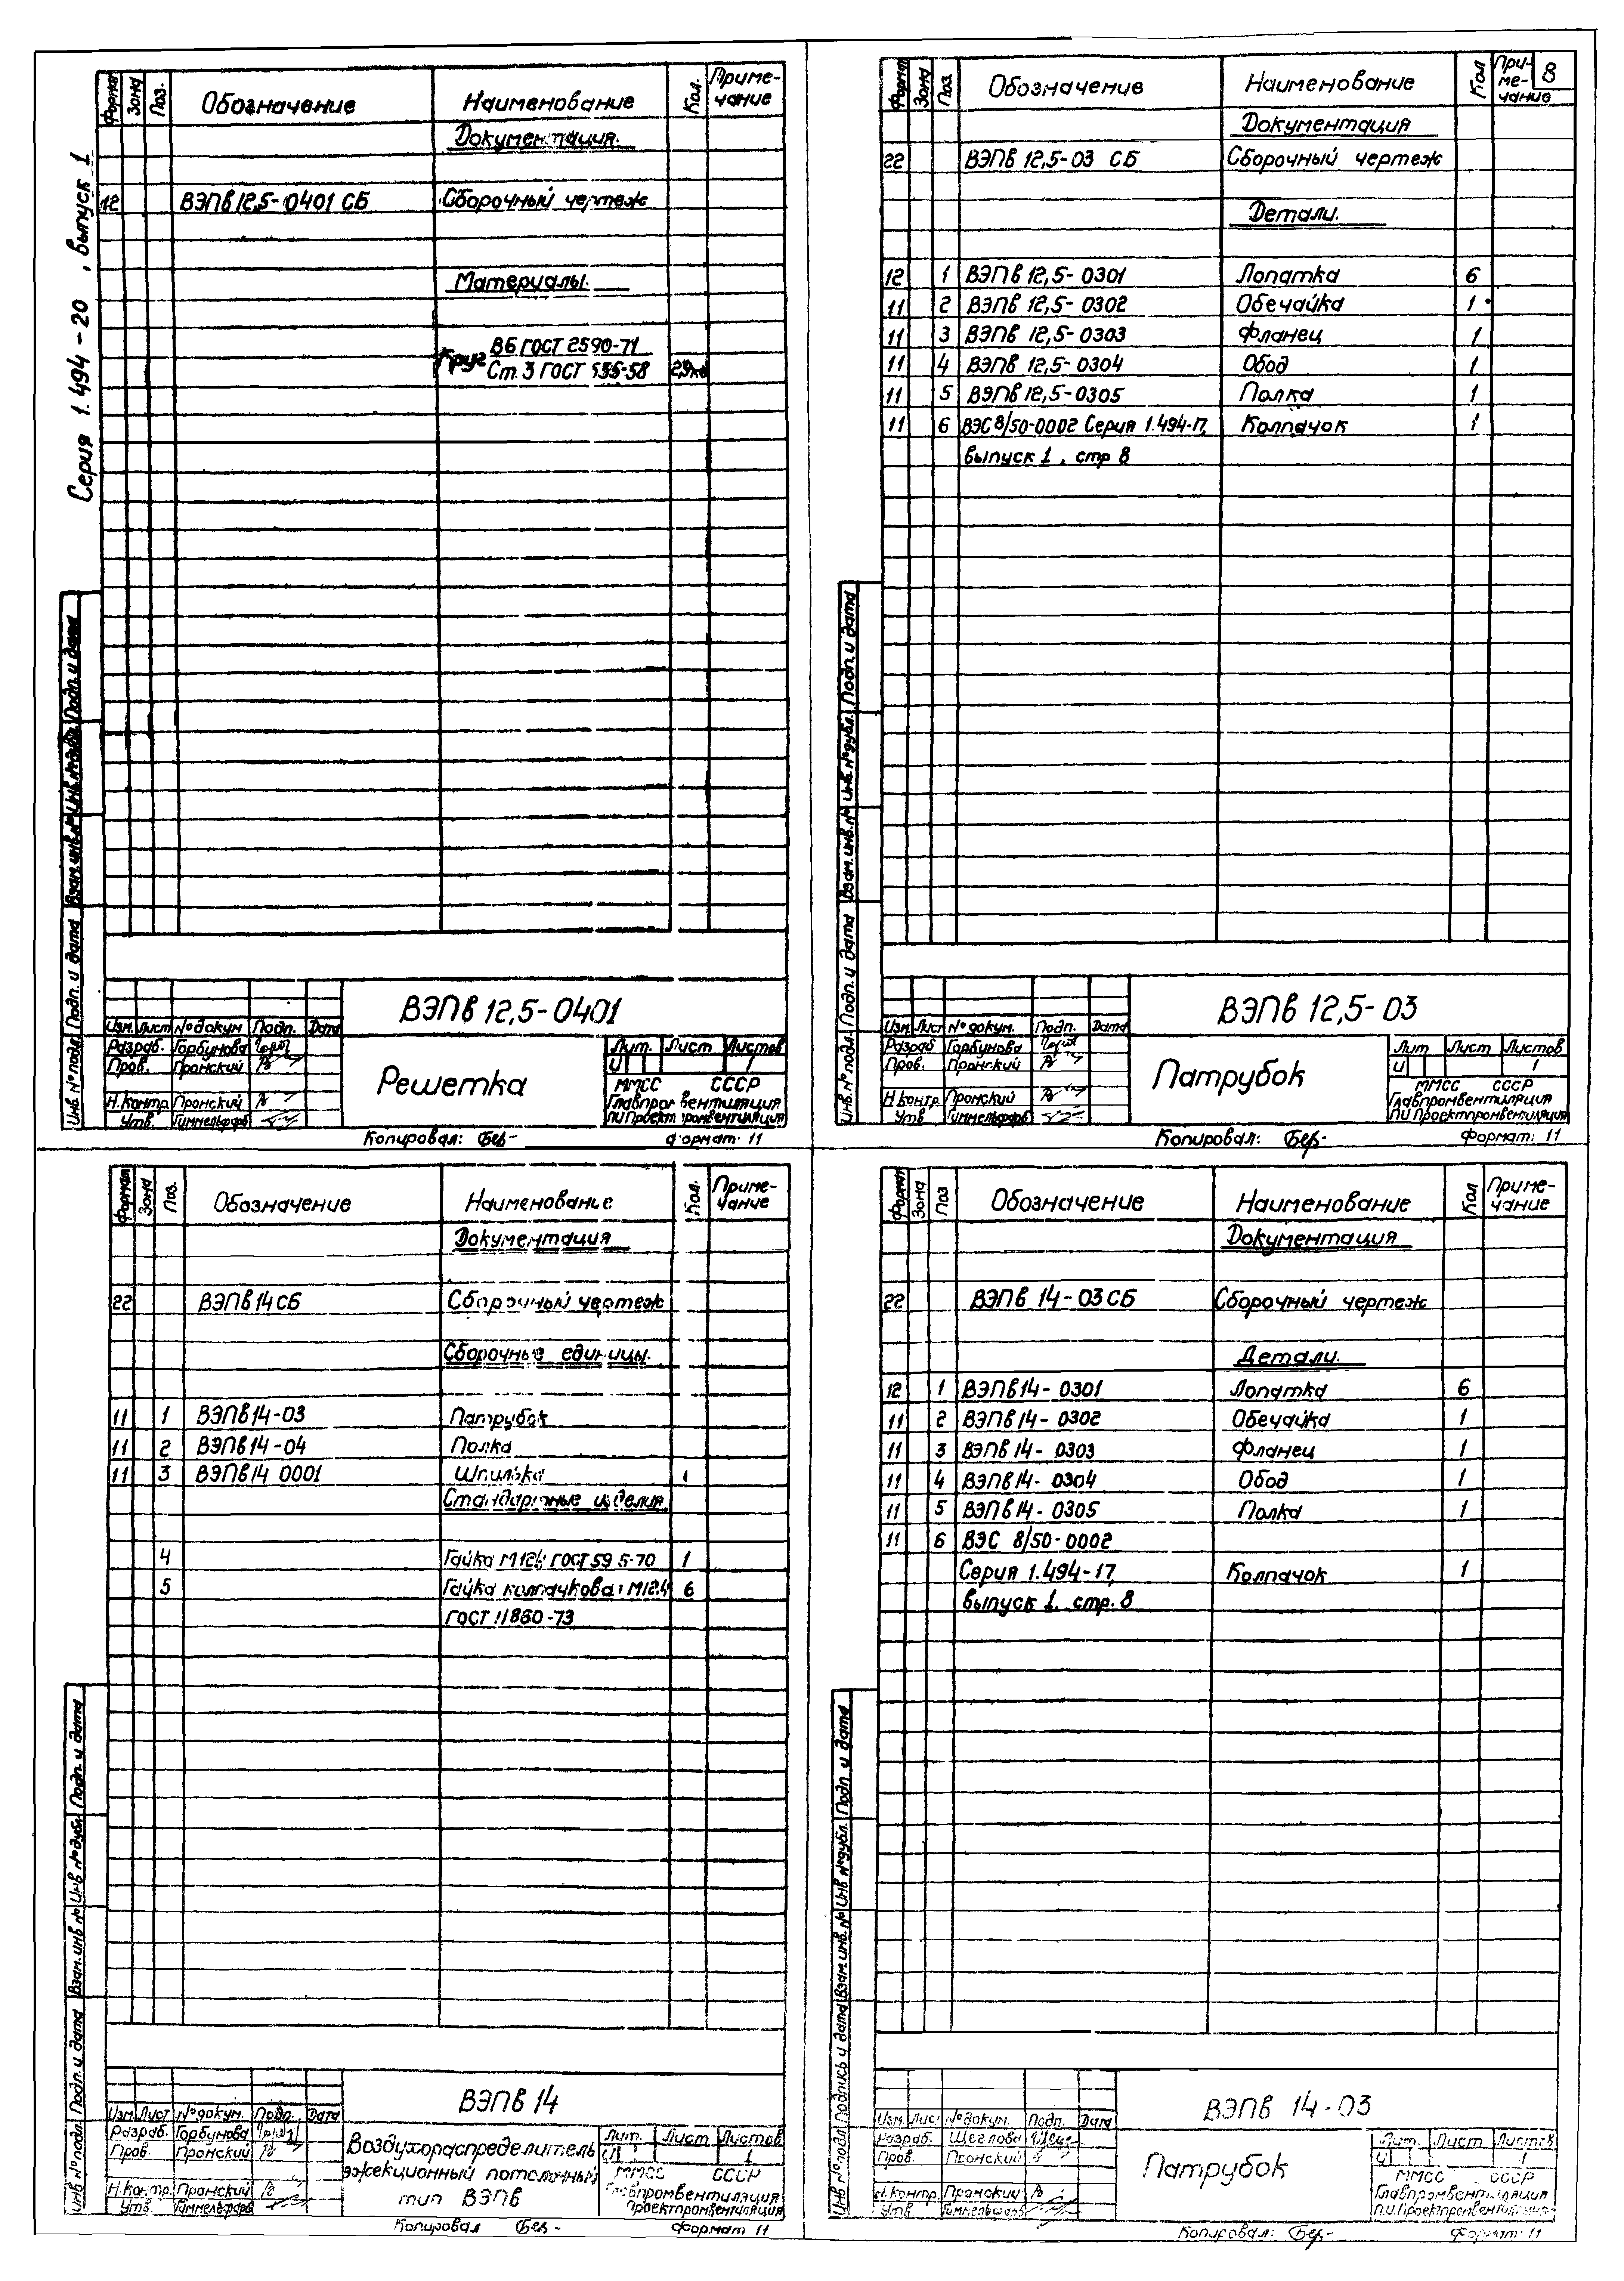 Серия 1.494-20, выпуск 1
Формат Зона Поз. Обозначение Наименование Кол. Приме-
чание
Документация.
12 ВЭПв 12,5-0401 СБ Сборочный чертеж
Материалы.
Круг В6 ГОСТ 2590-71
Ст. 3 ГОСТ 535-58
Инв. № подл. Подп. и дата Взам. инв. № Инв. № дубл. Подп. и дата
ВЭПв 12,5-0401
Изм. Лист № докум Подп. Дата
Разраб. Горбунова
Пров. Пронский
Н.контр. Пронский
Утв. Гиммельфарб
Решетка
Лит. Лист Листов
И 1
ММСС СССР
Главпромвентиляция
ПИ Проектпромвентиляция
Копировал: Бер-
Формат 11
8
Формат Зона Поз Обозначение Наименование Кол При-
ме-
чание
Документация
22 ВЭПв 12,5-03 СБ Сборочный чертеж
Детали.
12 1 ВЭПв 12,5-0301 Лопатка 6
11 2 ВЭПв 12,5-0302 Обечайка 1
11 3 ВЭПв 12,5-0303 Фланец 1
11 4 ВЭПв 12,5-0304 Обод 1
11 5 ВЭПв 12,5-0305 Полка 1
11 6 ВЭС 8/50-0002 Серия 1.494-17, Колпачок 1
выпуск 1, стр 8
Инв. № подл. Подп. и дата Взам. инв. № Инв. № дубл. Подп. и дата
ВЭПв 12,5-03
Изм. Лист № докум. Подп. Дата
Разраб Горбунова
Пров. Пронский
Н контр. Пронский
Утв Гиммельфарб
Патрубок
Лит Лист Листов
И 1
ММСС СССР
Главпромвентиляция
ПИ Проектпромвентиляция
Копировал: Бер-
Формат: 11
Формат Зона Поз. Обозначение Наименование Кол. Приме-
чание
Документация
22 ВЭПв 14 СБ Сборочный чертеж
Сборочные единицы.
11 1 ВЭПв 14-03 Патрубок
11 2 ВЭПв 14-04 Полка
11 3 ВЭПв 14 0001 Шпилька 1
Стандартные изделия
4 Гайка М12.4 ГОСТ 59 5-70 1
5 Гайка колпачковая М12.4 6
ГОСТ 11860-73
Инв № подл. Подп. и дата Взам. инв № Инв № дубл. Подп. и дата
ВЭПв 14
Изм. Лист № докум. Подп. Дата
Разраб. Горбунова
Пров. Пронский
Н.контр. Пронский
Утв. Гиммельфарб
Воздухораспределитель
эжекционный потолочный
тип ВЭПв
Лит. Лист Листов
И 1
ММСС СССР
Главпромвентиляция
Проектпромвентиляция
Копировал Бер-
Формат 11
Формат Зона Поз Обозначение Наименование Кол Приме-
чание
Документация
22 ВЭПв 14-03 СБ Сборочный чертеж
Детали.
12 1 ВЭПв 14-0301 Лопатка 6
11 2 ВЭПв 14-0302 Обечайка 1
11 3 ВЭПв 14-0303 Фланец 1
11 4 ВЭПв 14-0304 Обод 1
11 5 ВЭПв 14-0305 Полка 1
11 6 ВЭС 8/50-0002
Серия 1.494-17, Колпачок 1
выпуск 1, стр. 8
Инв № подл Подпись и дата Взам. инв. № Инв № дубл. Подп и дата
ВЭПв 14-03
Изм. Лист № докум. Подп. Дата
Разраб. Щеглова
Пров. Пронский
Н.контр. Пронский
Утв Гиммельфарб
Патрубок
Лит. Лист Листов
И 1
ММСС СССР
Главпромвентиляция
П.И. Проектпромвентиляция
Копировал: Бер-
Формат: 11